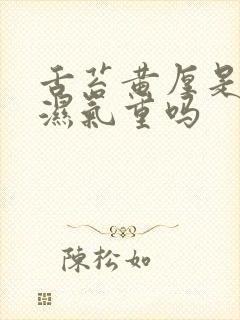 舌苔黄厚是
濕氣重吗
陳松如